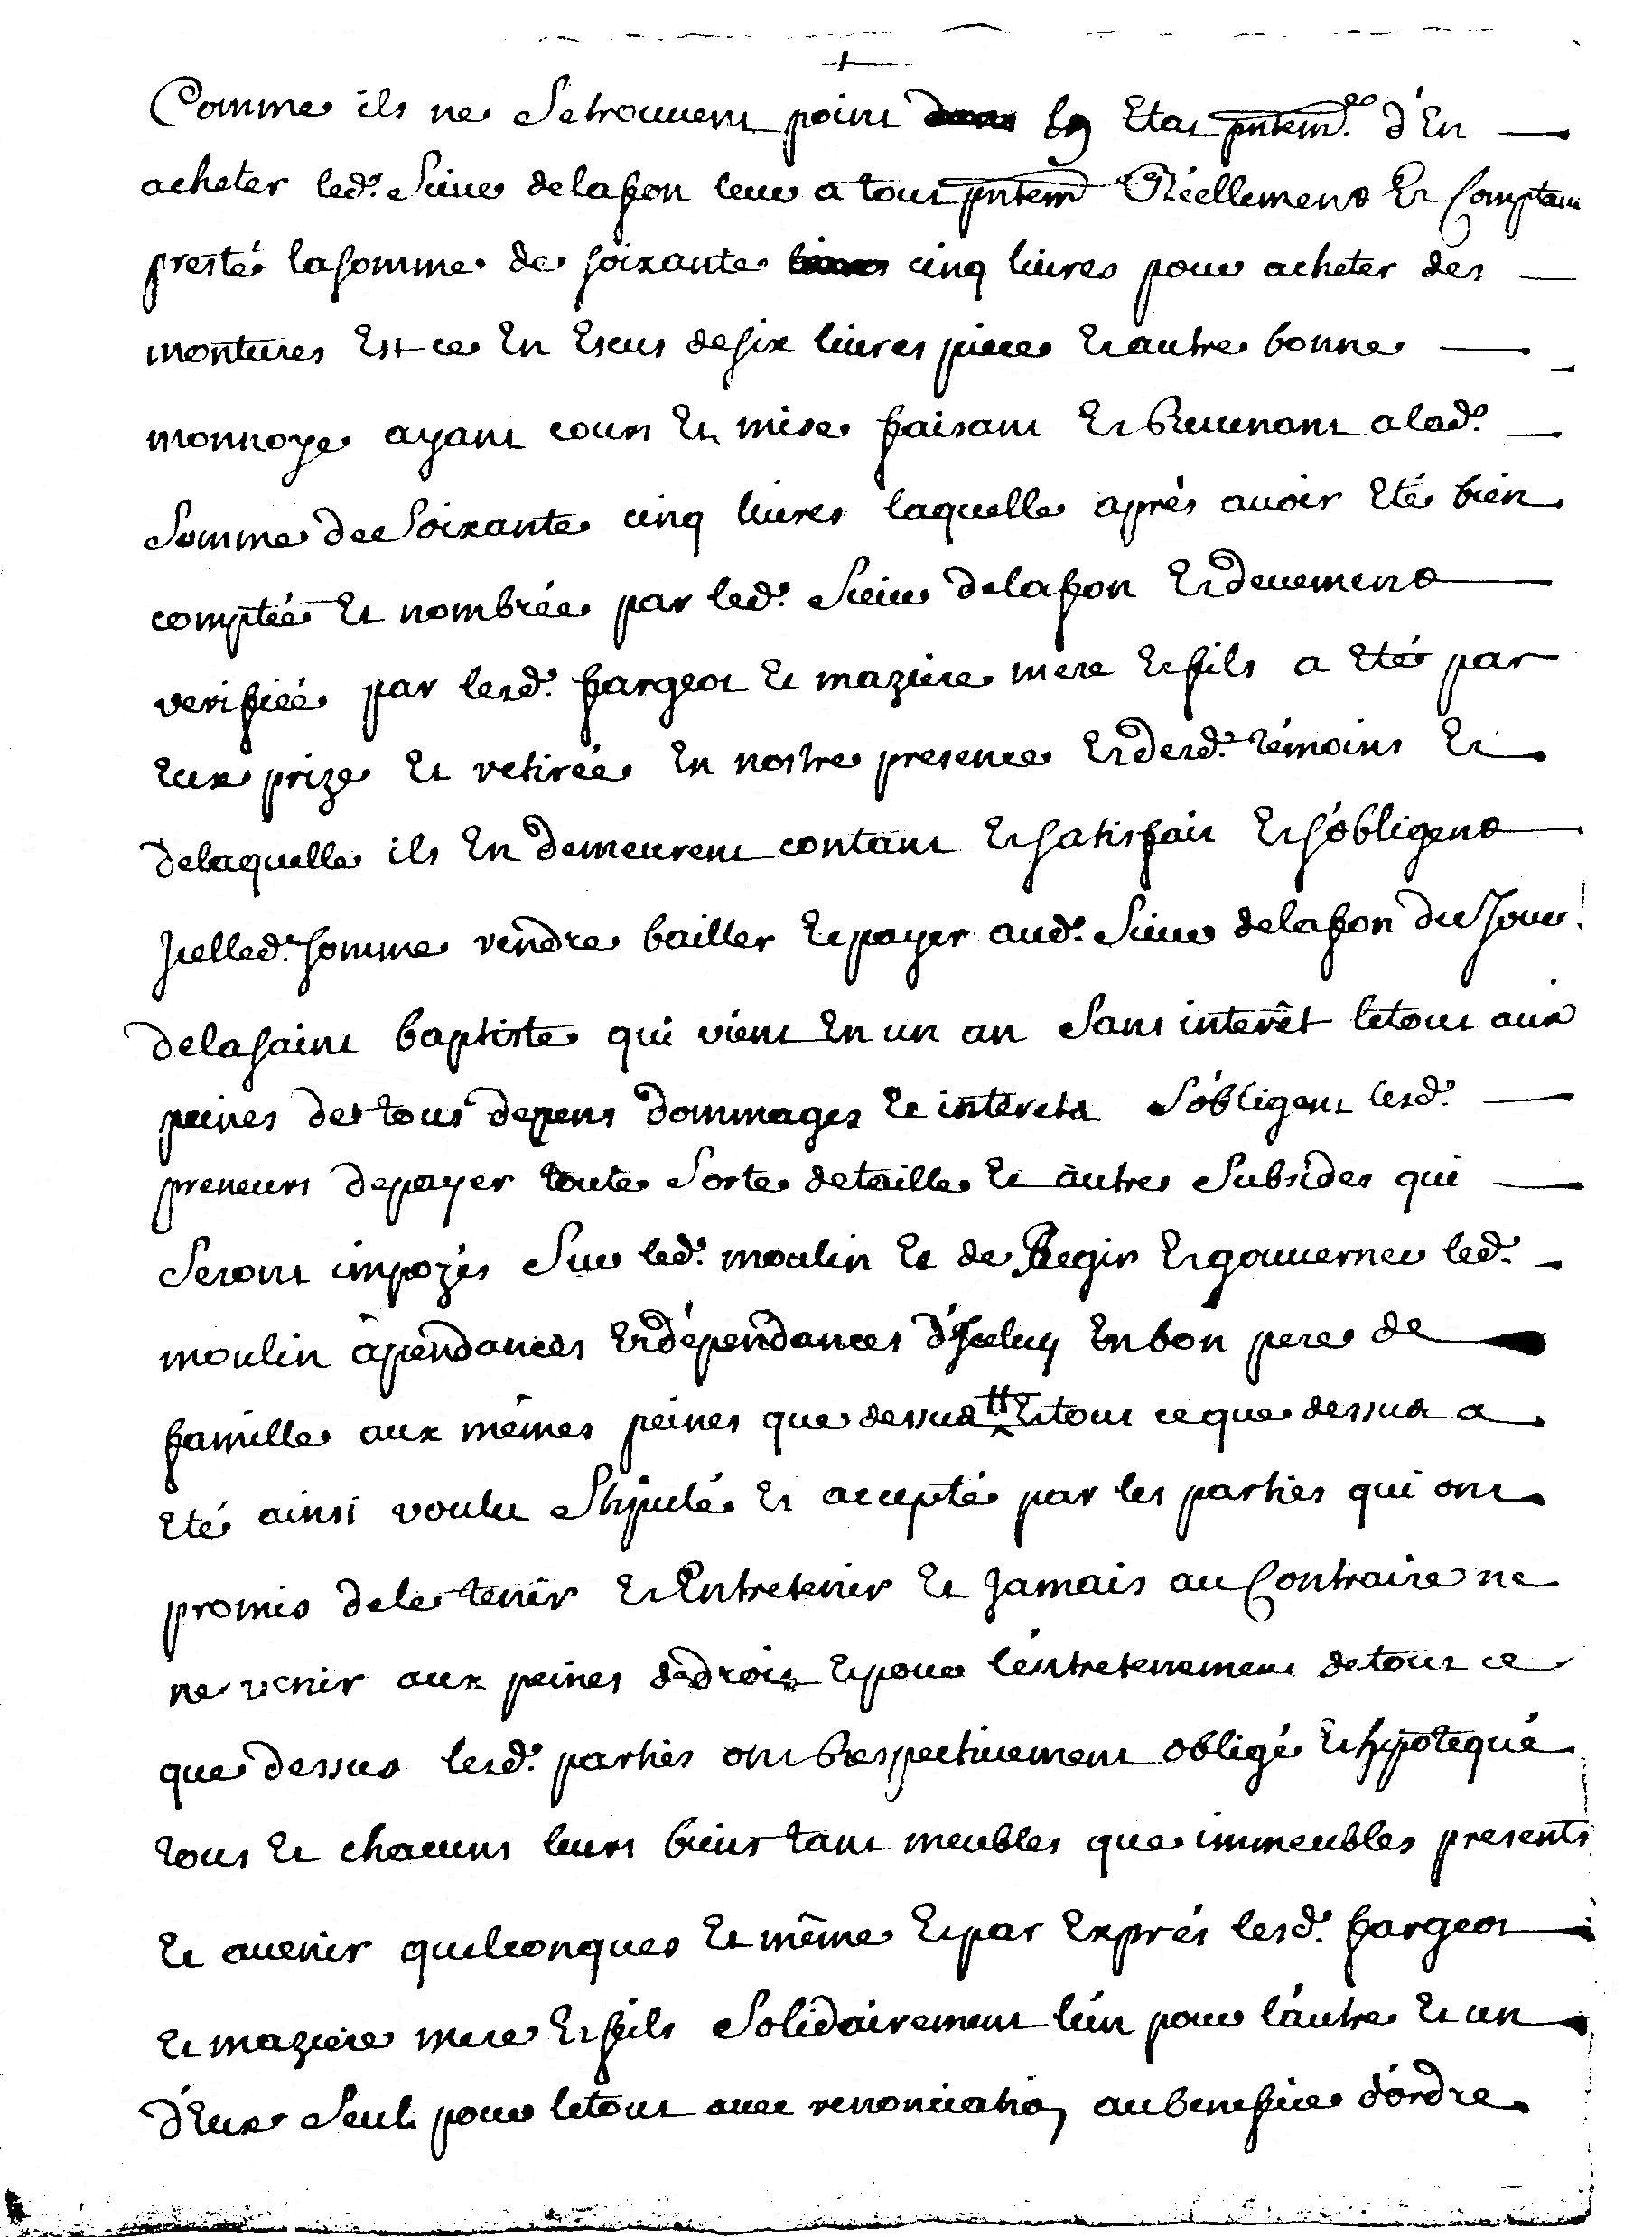 Comme ils ne Setrouvent point en Etat pntemt. d'En
acheter led. Sieur delafon leur a tout pntemt Réellement Et Comptant
presté lasomme de soixante cinq livres pour acheter des
montures Est ce En Escus desix livres piece Et autre bonne
monnoye ayant cours Et mise faisant Et Revenant alad.
Somme de Soixante cinq livres laquelle aprés avoir Eté bien
comptée Et nombrée par led. Sieur delafon Et deuement
verifiéé par lesd. fargeot Et maziere mere Et fils a Eté par
Eux prize Et retirée En nostre presence Et desd. témoins Et
delaquelle ils En demeurent contant Et satisfait Et s'obligent
Jcelled. somme rendre bailler Et payer aud. Sieur delafon du Jour
delasaint baptiste qui vient En un an Sans interêt letout aux
peines de tous depens dommages Et interets S'obligent lesd.
preneurs depayer toute Sorte detaille Et autres Subsides qui
Seront impozés Sur led. moulin Et de Regir Et gouverner led.
moulin apendances Et dépendances d'Jceluy En bon pere de
famille aux mêmes peines que dessus Et tout ceque dessus a
Eté ainsi voulu Stipulé Et accepté par les parties qui ont
promis dele tenir Et Entretenir Et Jamais au Contraire ne
ne venir aux peines dedroit Et pour l'entretenement detout ce
que dessus lesd. parties ont Respectivement obligé Et hypotequé
tous Et chacuns leurs biens tant meubles que immeubles presents
Et avenir quelconques Et même Et par Exprés lesd. fargeot
Et maziere mere Et fils Solidairement l'un pour l'autre Et un
d'Eux Seul pour letout avec renonciation aubenefice d'ordre